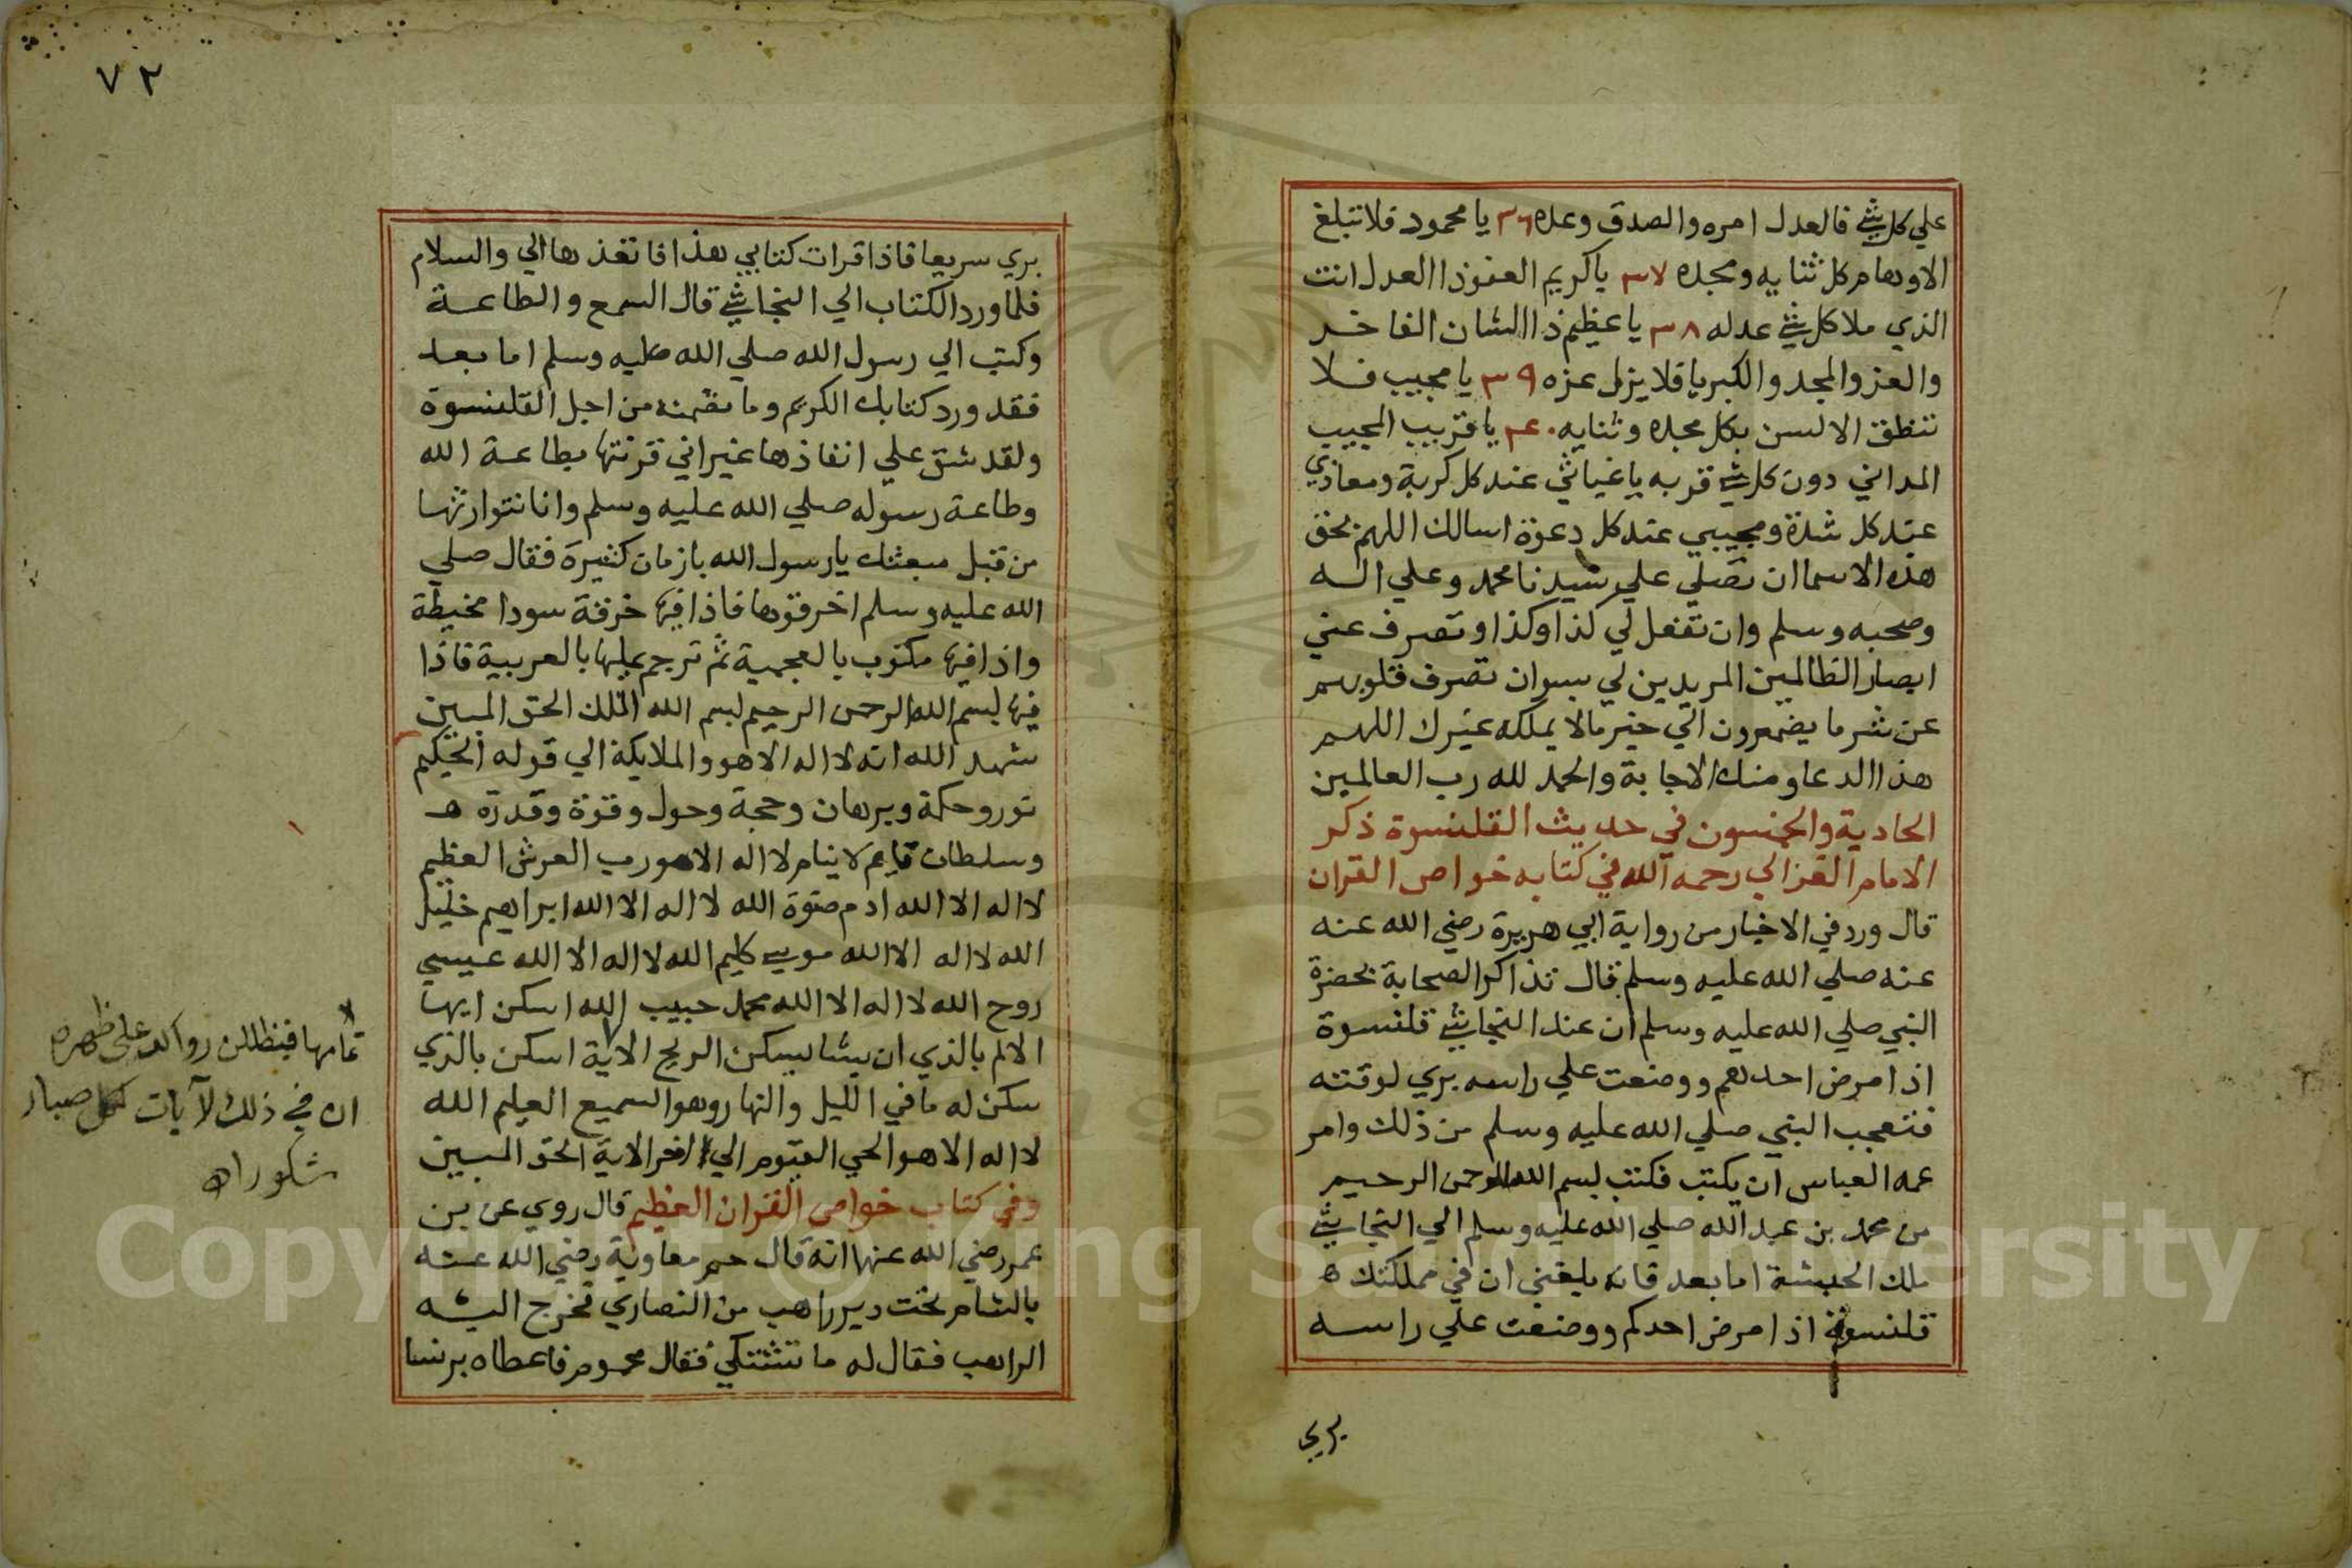 علي كل شي فالعدل امره والصدق وعده ٣٦ يا محمود فلا تبلغ
الاوهام كل ثنايه ومجده ٣٧ ياكريم العفوذا العدل انت
الذي ملا كل شي عدله ٣٨ يا عظيم ذا الشان الفاخر
والعز والمجد والكبريا فلا يزل عزه ٣٩ يا مجيب فلا
تنطق الالسن بكل مجده وثنايه ٤٠ يا قريب المجيب
المداني دون كل شي قربه يا غياثي عند كل كربة ومعاذي
عند كل شدة ومجيبي عند كل دعوة اسالك اللهم بحق
هذه الاسما ان تصلي علي سيدنا محمد وعلي اله
وصحبه وسلم وان تفعل لي كذا وكذا وتصرف عني
ابصار الظالمين المريدين لي بسو وان تصرف قلوبهم
عن شر ما يضمرون الي خير مالا يملكه غيرك اللهم
هذا الدعا ومنك الاجابة والحمد لله رب العالمين
الحادية والخمسون في حديث القلنسوة ذكر
الامام الغزالي رحمه الله في كتابه خواص القران
قال ورد في الاخبار من رواية ابي هريرة رضي الله عنه
عنه صلي الله عليه وسلم قال تذاكر الصحابة بحضرة
النبي صلي الله عليه وسلم ان عند النجاشي قلنسوة
اذا مرض احدهم ووضعت علي راسه بري لوقته
فتعجب النبي صلي الله عليه وسلم من ذلك وامر
عمه العباس ان يكتب فكتب بسم الله الرحمن الرحيم
من محمد بن عبد الله صلي الله عليه وسلم الي النجاشي
ملك الحبشة اما بعد فانه بلغني ان في مملكتك ه
قلنسوة اذا مرض احدكم ووضعت علي راسه
بري
٧٢
بري سريعا فاذا قرات كتابي هذا فانفذها الي والسلام
فلما ورد الكتاب الي النجاشي قال السمع والطاعة
وكتب الي رسول الله صلي الله عليه وسلم اما بعد
فقد ورد كتابك الكريم وما تضمنه من اجل القلنسوة
ولقد شق علي انفاذها غير اني قرنتها بطاعة الله
وطاعة رسوله صلي الله عليه وسلم وانا نتوارثها
من قبل مبعثك يا رسول الله بازمان كثيرة فقال صلي
الله عليه وسلم اخرقوها فاذا فيها خرقة سودا مخيطة
واذا فيها مكتوب بالعجمية ثم ترجم عليها بالعربية فاذا
فيها بسم الله الرحمن الرحيم بسم الله الملك الحق المبين
شهد الله انه لا اله الا هو والملايكة الي قوله الحكيم
نور وحكمة وبرهان وحجة وحول وقوة وقدرة ه
وسلطان قايم لا ينام لا اله الا هو رب العرش العظيم
لا اله الا الله ادم صفوة الله لا اله الا الله ابراهيم خليل
الله لا اله الا الله موسي كليم الله لا اله الا الله عيسي
روح الله لا اله الا الله محمد حبيب الله اسكن ايها
الالم بالذي ان يشا يسكن الريح الاية اسكن بالذي
سكن له ما في الليل والنهار وهو السميع العليم الله
لا اله الا هو الحي القيوم الي اخر الاية الحق المبين
وفي كتاب خواص القران العظيم قال روي عن بن
عمر رضي الله عنها انه قال حم معاوية رضي الله عنه
بالشام تحت دير راهب من النصاري فخرج اليه
الراهب فقال له ما تشتكي فقال محموم فاعطاه برنسا
تمامها فيظللن رواكد على ظهره
ان في ذلك لآيات لكل صبار
شكور اه
Copyright © King Saud University